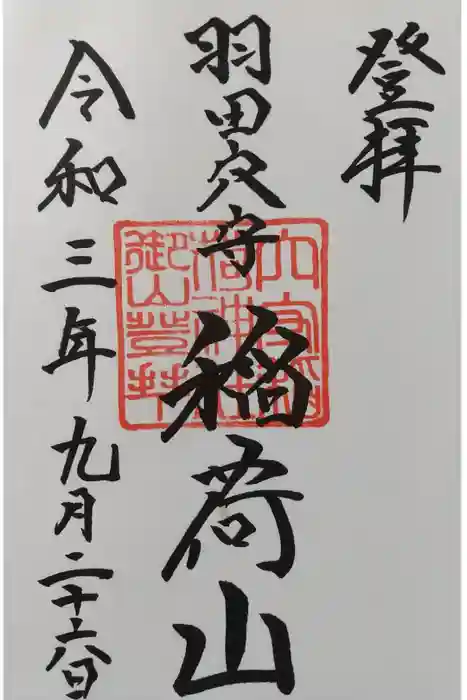 登拝
羽田穴守稲荷山
令和三年九月二十六日
穴守稲
荷神社
御山登拝